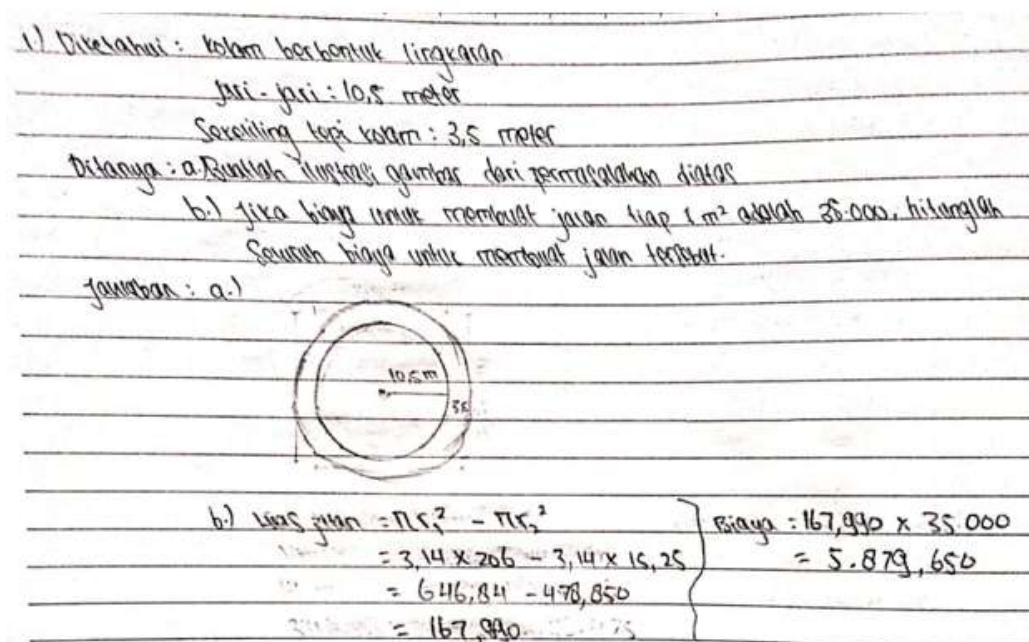 1.) Diketahui : kolam berbentuk lingkaran
Jari-jari : 10,5 meter
Sekeliling tepi kolam : 3,5 meter
Ditanya : a. Buatlah ilustrasi gambar dari permasalahan diatas
b.) Jika biaya untuk membuat jalan tiap 1 m² adalah 35.000, hitunglah
Seluruh biaya untuk membuat jalan tersebut.
Jawaban : a.)
10,5 m
3,5
b.) Luas jalan = πr₁² - πr₂²
= 3,14 x 206 - 3,14 x 15,25
= 646,84 - 478,850
= 167,990
Biaya : 167,990 x 35.000
= 5.879,650